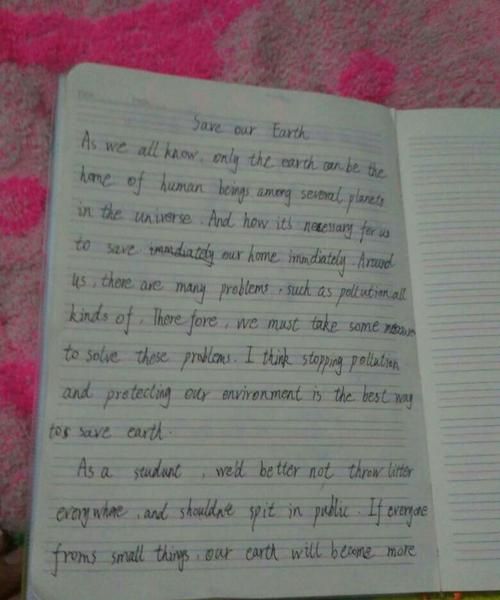 Save our Earth
As we all know, only the earth can be the
home of human beings among several planets
in the universe. And how it's necessary for us
to save immediately our home immediately. Around
us, there are many problems, such as pollution all
kinds of. Therefore, we must take some
to solve these problems. I think stopping pollution
and protecting our environment is the best way
to save earth.
As a student, we'd better not throw litter
everywhere, and shouldn't spit in public. If everyone
froms small things, our earth will become more